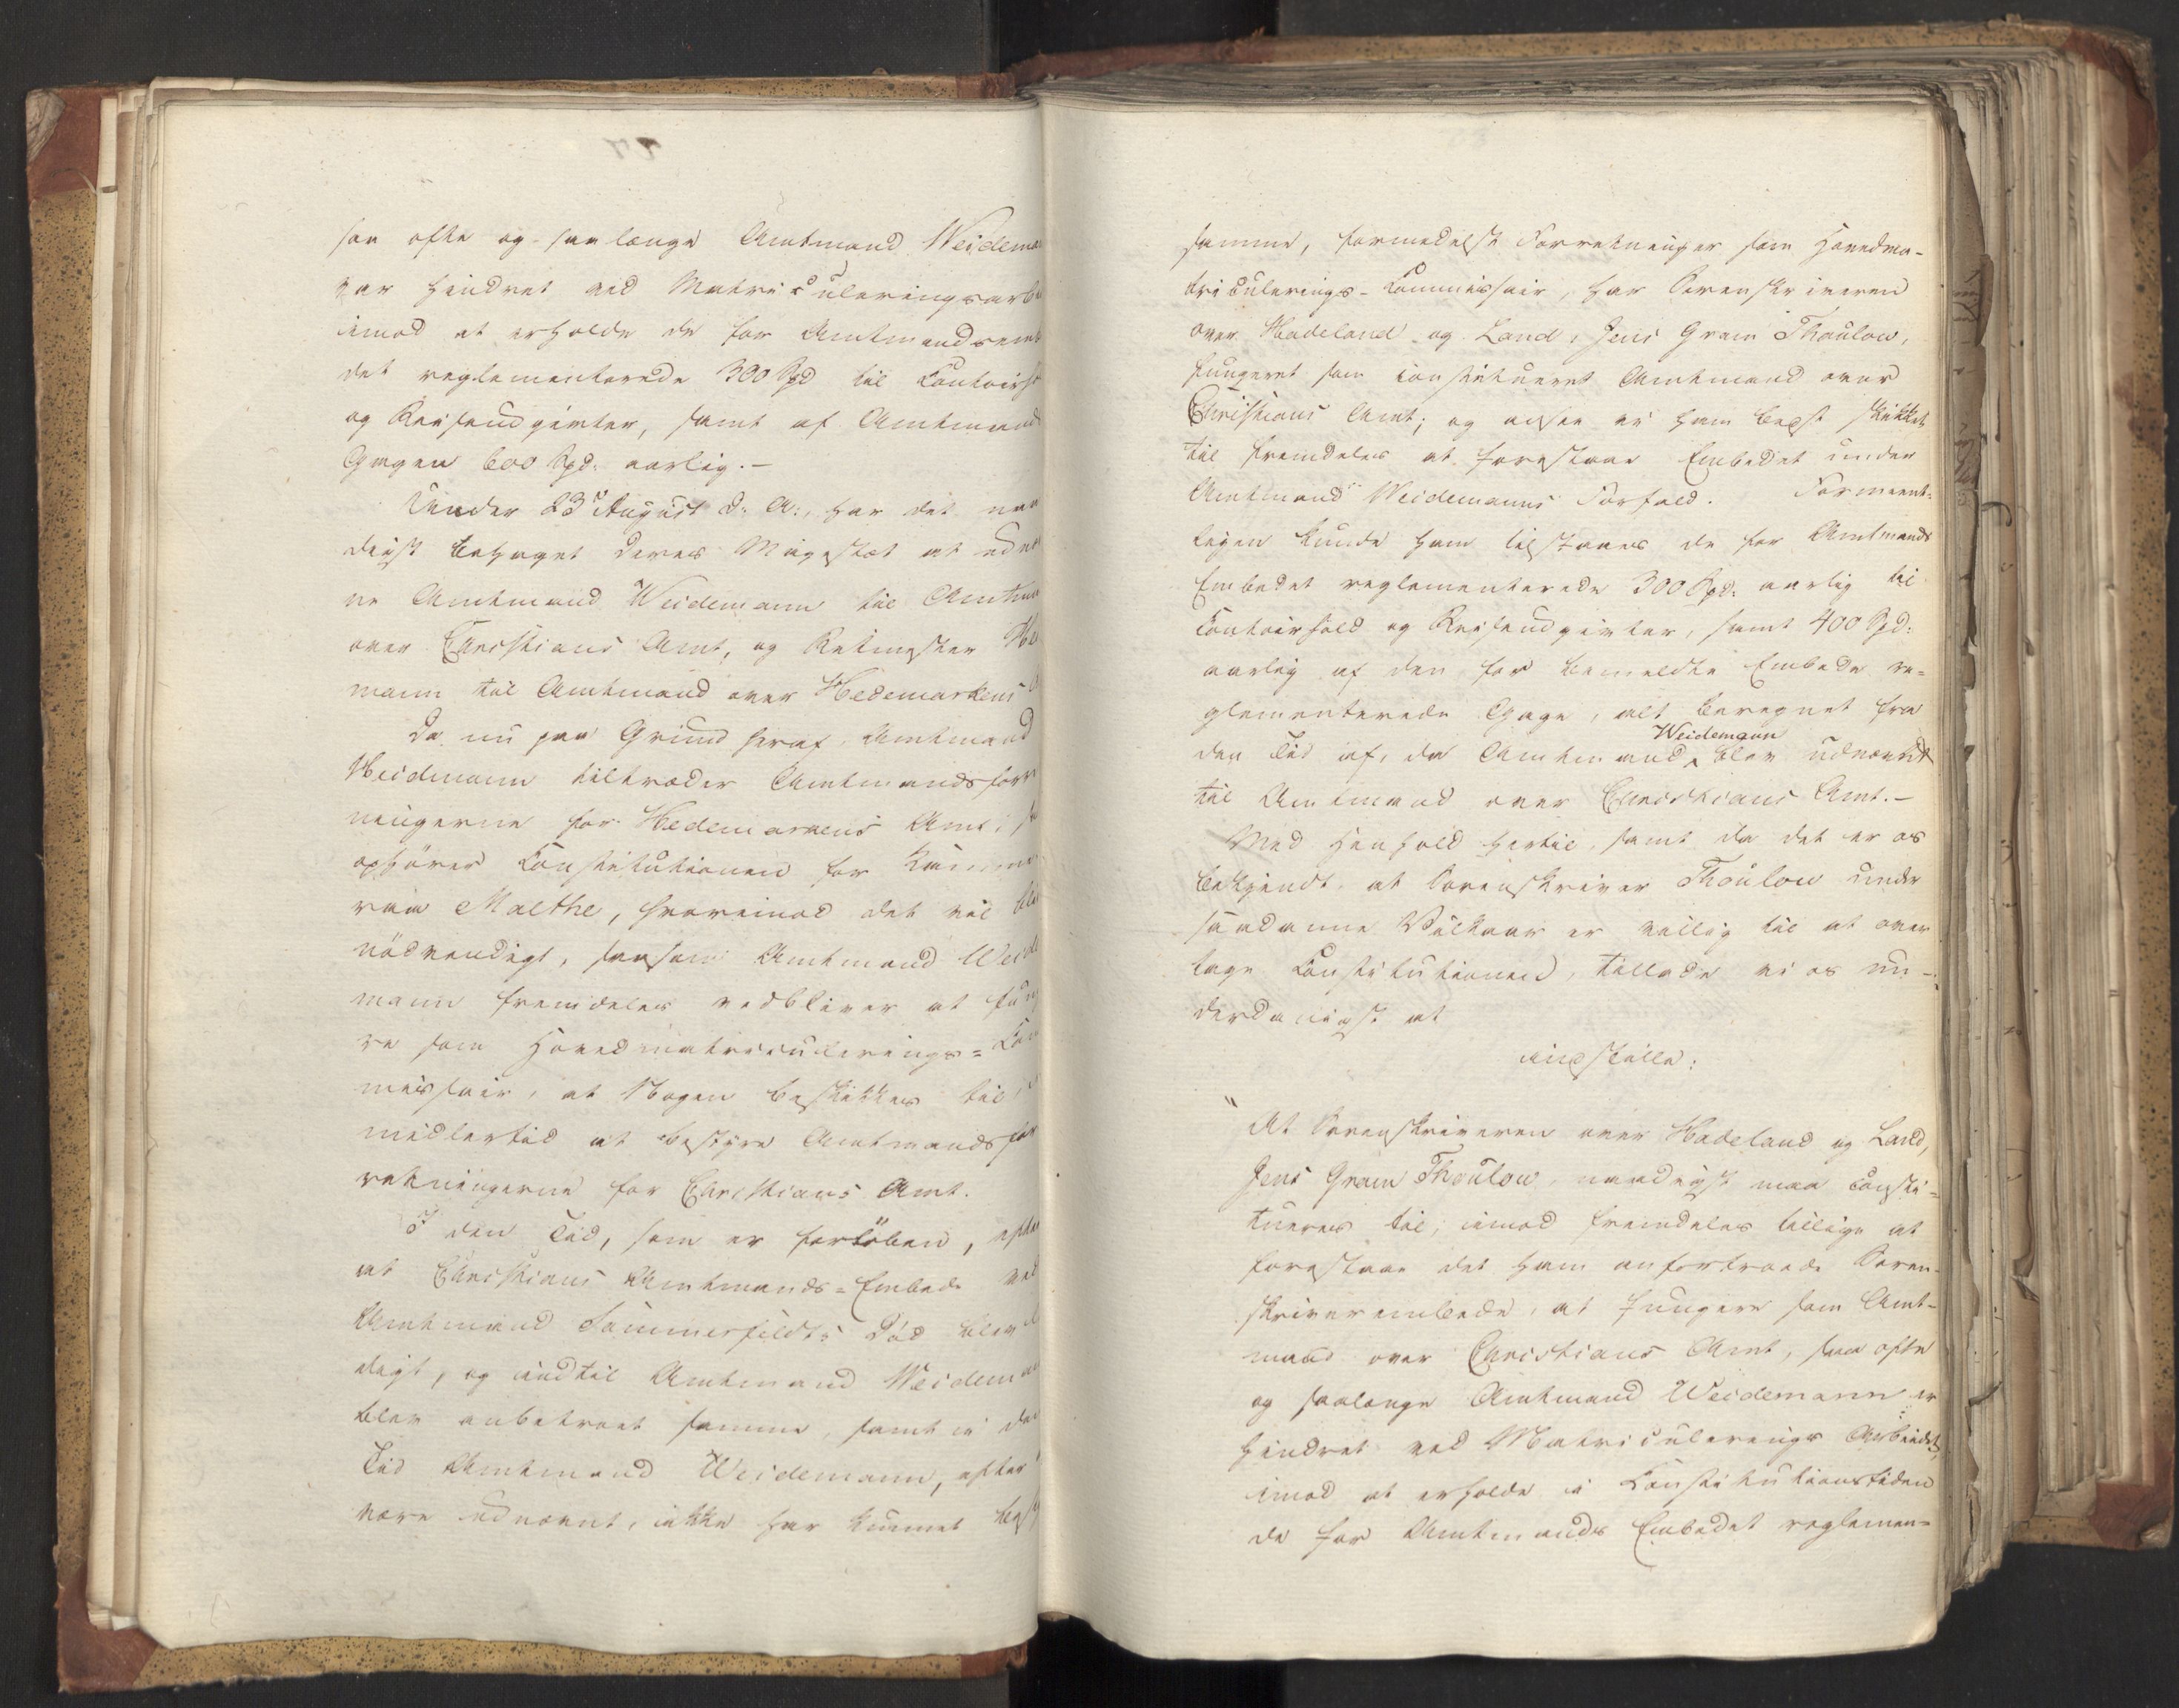 saa ofte og saalænge Amtmand Weidema
var hindret ved Matriculeringsarbe
imod at erholde de for Amtmandsemb
det reglementerede 300 Spd til Contoirho
og Reiseudgivter, samt af Amtmands
Gagen 600 Spd: aarlig.-
Under 23de August d: A:, har det naa
digst behaget Deres Majestæt at udnæ
ne Amtmand Weidemann til Amtma
over Christians Amt, og Ritmester He
mann til Amtmand over Hedemarkens A
Da nu paa Grund heraf Amtmand
Heidmann tiltræder Amtmandsforr
ningerne for Hedemarkens Amt, sa
ophører Constitutionen for Kamme
raa Malthe, hvorimod det vil bli
nødvendigt, saasom Amtmand Weide
mann fremdeles vedbliver at fung
re som Hovedmatriculerings=Com
missair, at Nogen beskikkes til i
midlertid at bestyre Amtmandsfor
retningerne for Christians Amt.
I den Tid, som er forløben, efter
at Christians Amtmands=Embede ved
Amtmand Sommerfeldts Død blev l
digt, og indtil Amtmand Weideman
blev anbetroet samme, samt i den
Tid Amtmand Weidemann, efter
være udnævnt, ikke har kunnet besty
samme, formedelst Forretninger som Hovedma-
triculerings-Commissair, har Sorenskriveren
over Hadeland og Land, Jens Gram Thaulow,
fungeret som constitueret Amtmand over
Christians Amt; og ansee vi ham bedst skikket
til fremdeles at forestaae Embedet under
Amtmand Weidemanns Forfald. Formeent-
ligen kunde ham tilstaaes de for Amtmands
Embedet reglementerede 300 Spd: aarlig til
Contoirhold og Reiseudgivter, samt 400 Spd:
aarlig af den for bemeldte Embede re=
glementerede Gage, alt beregnet fra
den Tid af, da Amtmand Weidemann blev udnævnt
til Amtmand over Christians Amt.-
Med Henhold hertil, samt da det er os
bekjendt, at Sorenskriver Thaulow under
saadanne Vilkaar er villig til at over
tage Constitutionen, tillade vi os un-
derdanigst at
indstille:
"At Sorenskriveren over Hadeland og Land,
Jens Gram Thaulow, naadigst maa consti=
tueres til, imod fremdeles tillige at
forestaae det ham anfortroede Soren-
skriverembede, at fungere som Amt-
mand over Christians Amt, saa ofte
og saalænge Amtmand Weidemann er
hindret ved Matriculerings Arbeidet,
imod at erholde i Constitutionstiden
de for Amtmands Embedet reglemen=